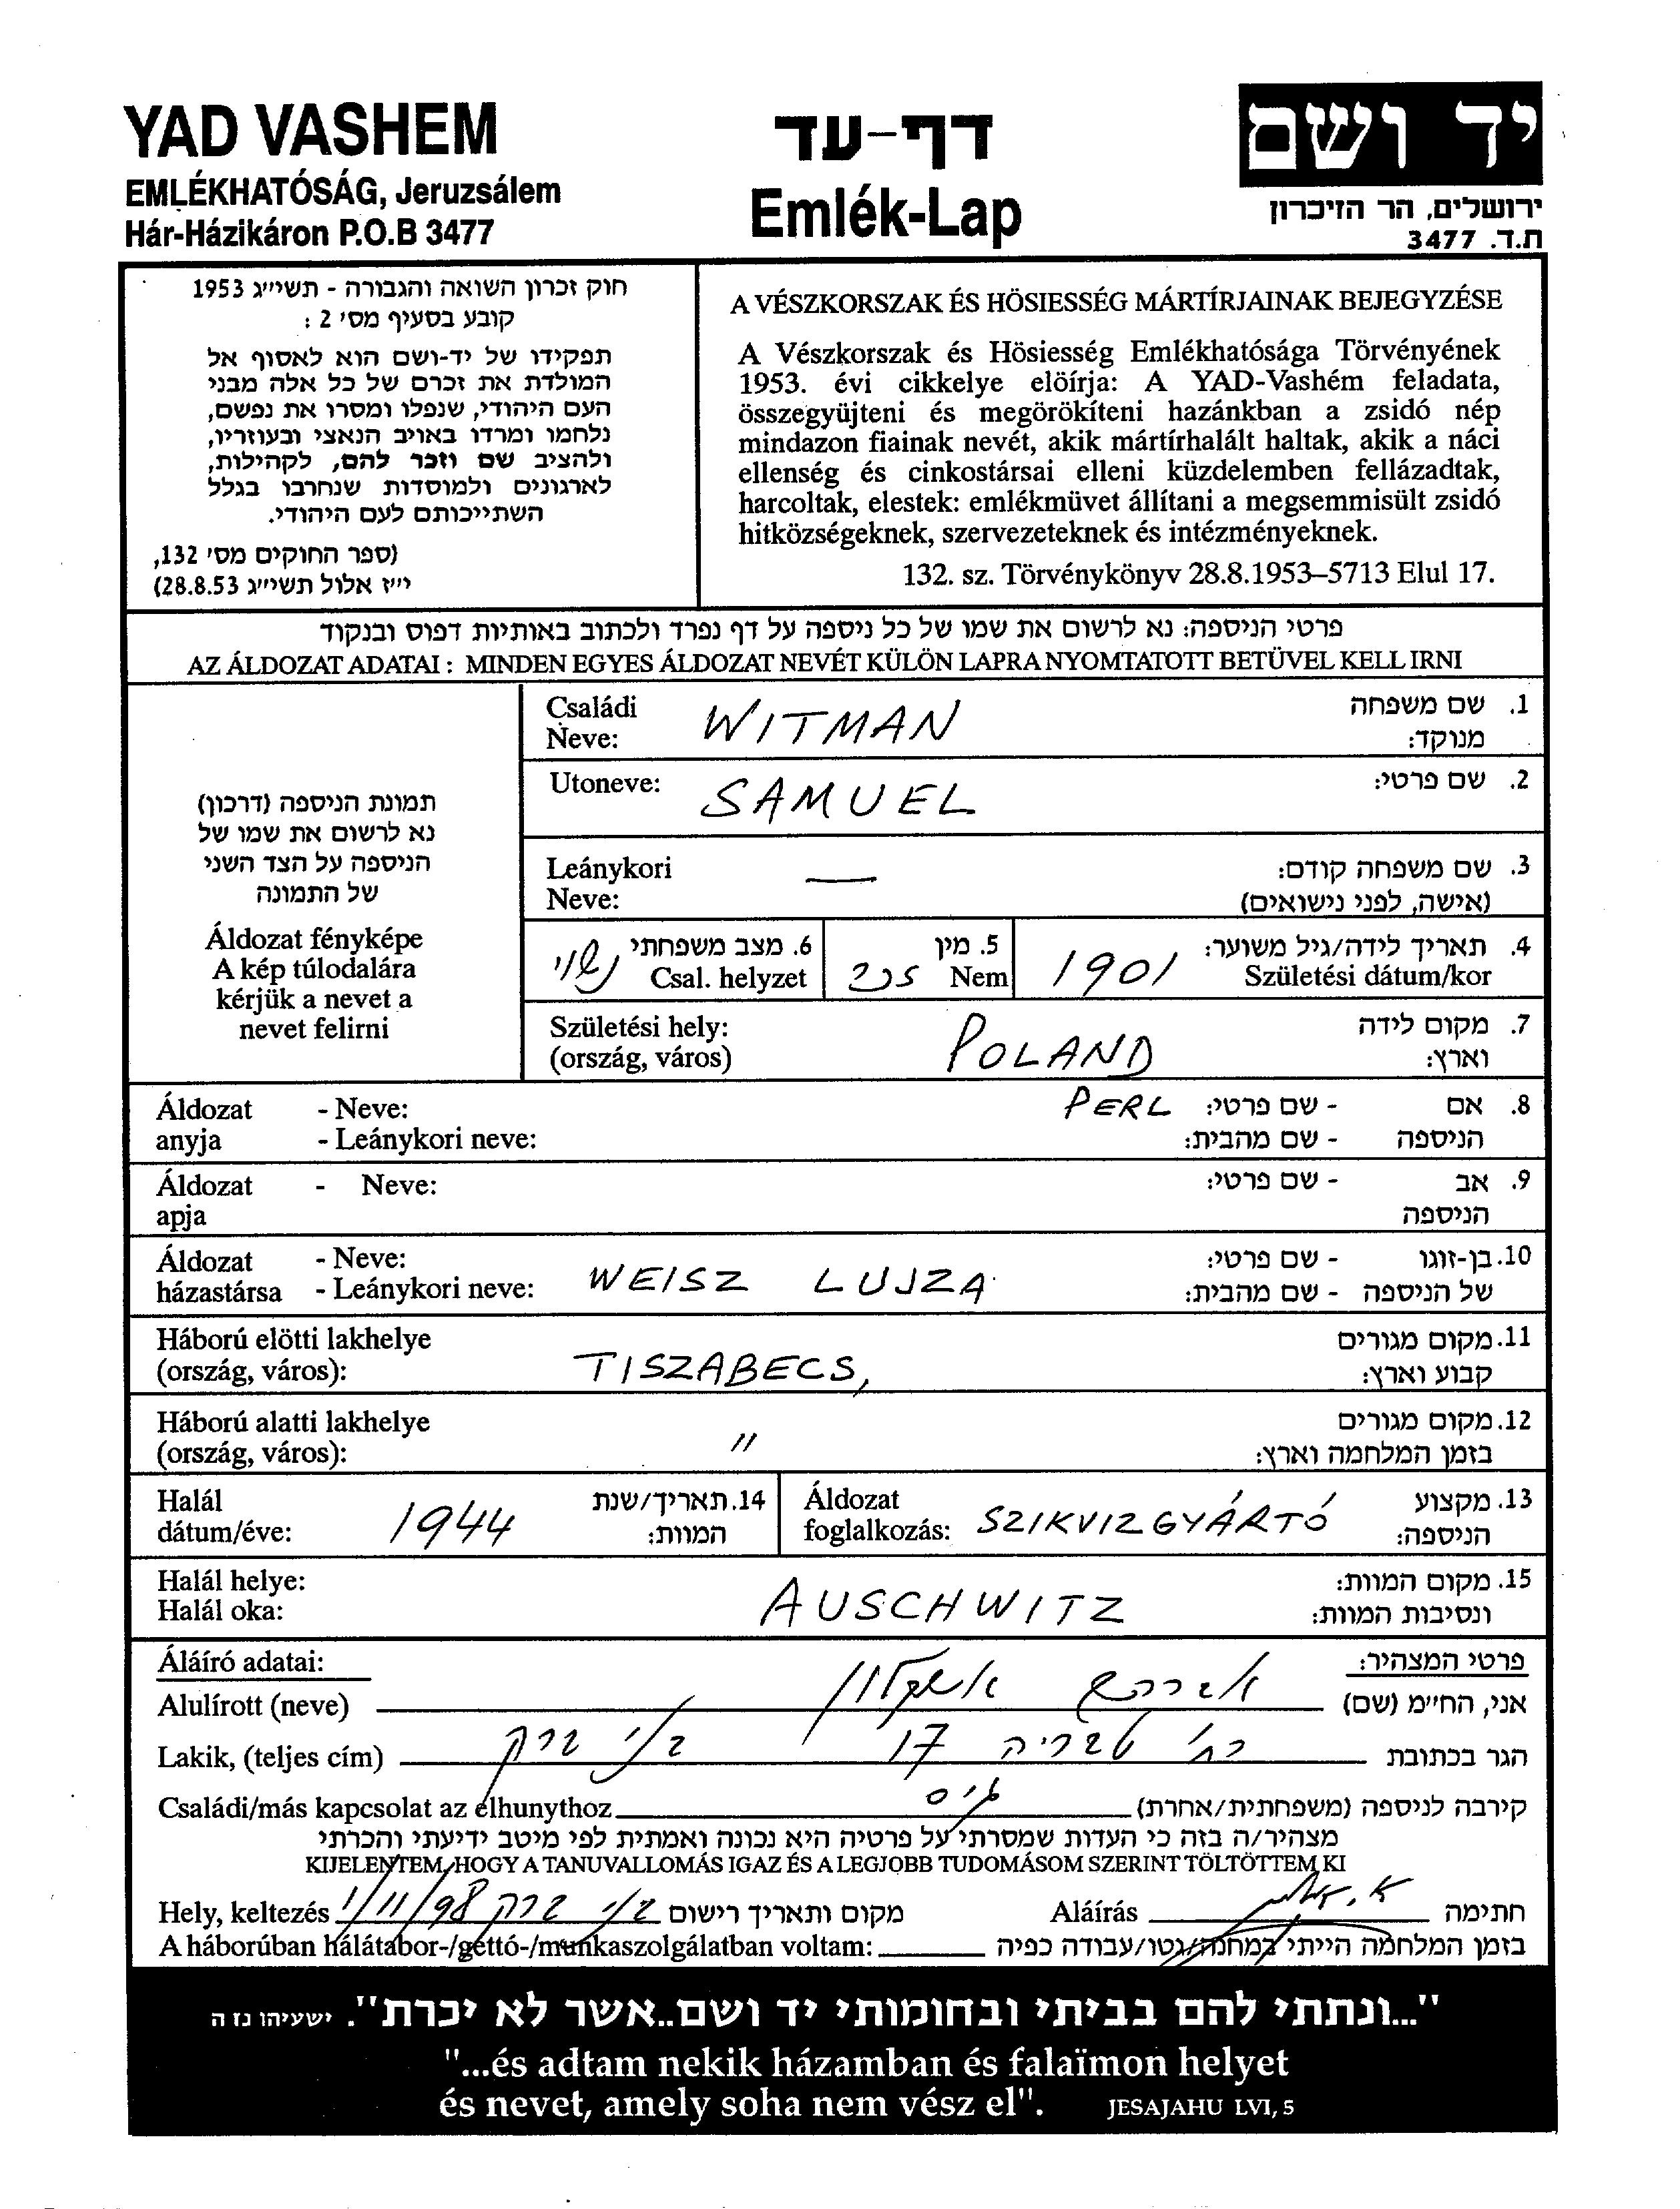 YAD VASHEM
EMLÉKHATÓSÁG, Jeruzsálem
Hár-Házikáron P.O.B 3477
דף-עד
Emlék-Lap
יד ושם
ירושלים, הר הזיכרון
ת.ד. 3477
חוק זכרון השואה והגבורה - תשי״ג 1953
קובע בסעיף מס׳ 2 :
תפקידו של יד-ושם הוא לאסוף אל
המולדת את זכרם של כל אלה מבני
העם היהודי, שנפלו ומסרו את נפשם,
נלחמו ומרדו באויב הנאצי ובעוזריו,
ולהציב שם וזכר להם, לקהילות,
לארגונים ולמוסדות שנחרבו בגלל
השתייכותם לעם היהודי.
(ספר החוקים מס׳ 132,
י״ז אלול תשי״ג 28.8.53)
A VÉSZKORSZAK ÉS HÖSIESSÉG MÁRTÍRJAINAK BEJEGYZÉSE
A Vészkorszak és Hösiesség Emlékhatósága Törvényének
1953. évi cikkelye elöírja: A YAD-Vashém feladata,
összegyüjteni és megörökíteni hazánkban a zsidó nép
mindazon fiainak nevét, akik mártírhalált haltak, akik a náci
ellenség és cinkostársai elleni küzdelemben fellázadtak,
harcoltak, elestek: emlékmüvet állítani a megsemmisült zsidó
hitközségeknek, szervezeteknek és intézményeknek.
132. sz. Törvénykönyv 28.8.1953–5713 Elul 17.
פרטי הניספה: נא לרשום את שמו של כל ניספה על דף נפרד ולכתוב באותיות דפוס ובנקוד
AZ ÁLDOZAT ADATAI : MINDEN EGYES ÁLDOZAT NEVÉT KÜLÖN LAPRA NYOMTATOTT BETÜVEL KELL IRNI
תמונת הניספה (דרכון)
נא לרשום את שמו של
הניספה על הצד השני
של התמונה
Áldozat fényképe
A kép túlodalára
kérjük a nevet a
nevet felirni
Családi WITMAN 1. שם משפחה
Neve: מנוקד:
Utoneve: SAMUEL 2. שם פרטי:
Leánykori — 3. שם משפחה קודם:
Neve: (אישה, לפני נישואים)
נשוי 6. מצב משפחתי 5. מין 1901 4. תאריך לידה/גיל משוער:
Csal. helyzet זכר Nem Születési dátum/kor
Születési hely: POLAND 7. מקום לידה
(ország, város) וארץ:
Áldozat - Neve: PERL - שם פרטי: 8. אם
anyja - Leánykori neve: - שם מהבית: הניספה
Áldozat - Neve: - שם פרטי: 9. אב
apja הניספה
Áldozat - Neve: - שם פרטי: 10. בן-זוגו
házastársa - Leánykori neve: WEISZ LUJZA - שם מהבית: של הניספה
Háború elötti lakhelye 11. מקום מגורים
(ország, város): TISZABECS, קבוע וארץ:
Háború alatti lakhelye 12. מקום מגורים
(ország, város): " בזמן המלחמה וארץ:
Halál 14. תאריך/שנת Áldozat 13. מקצוע
dátum/éve: 1944 המוות: foglalkozás: SZIKVIZGYÁRTÓ הניספה:
Halál helye: AUSCHWITZ 15. מקום המוות:
Halál oka: ונסיבות המוות:
Áláíró adatai: פרטי המצהיר:
Alulírott (neve) אברהם אשקלוני אני, הח״מ (שם)
Lakik, (teljes cím) רח׳ טבריה 17 בני ברק הגר בכתובת
Családi/más kapcsolat az élhunythoz גיס קירבה לניספה (משפחתית/אחרת)
מצהיר/ה בזה כי העדות שמסרתי על פרטיה היא נכונה ואמתית לפי מיטב ידיעתי והכרתי
KIJELENTEM, HOGY A TANUVALLOMÁS IGAZ ÉS A LEGJOBB TUDOMÁSOM SZERINT TÖLTÖTTEM KI
Hely, keltezés 1/11/98 בני ברק מקום ותאריך רישום Aláírás חתימה
A háborúban hálátabor-/gettó-/munkaszolgálatban voltam: בזמן המלחמה הייתי במחנה/גטו/עבודה כפיה
"...ונתתי להם בביתי ובחומותי יד ושם..אשר לא יכרת". ישעיהו נז ה
"...és adtam nekik házamban és falaïmon helyet
és nevet, amely soha nem vész el". JESAJAHU LVI, 5